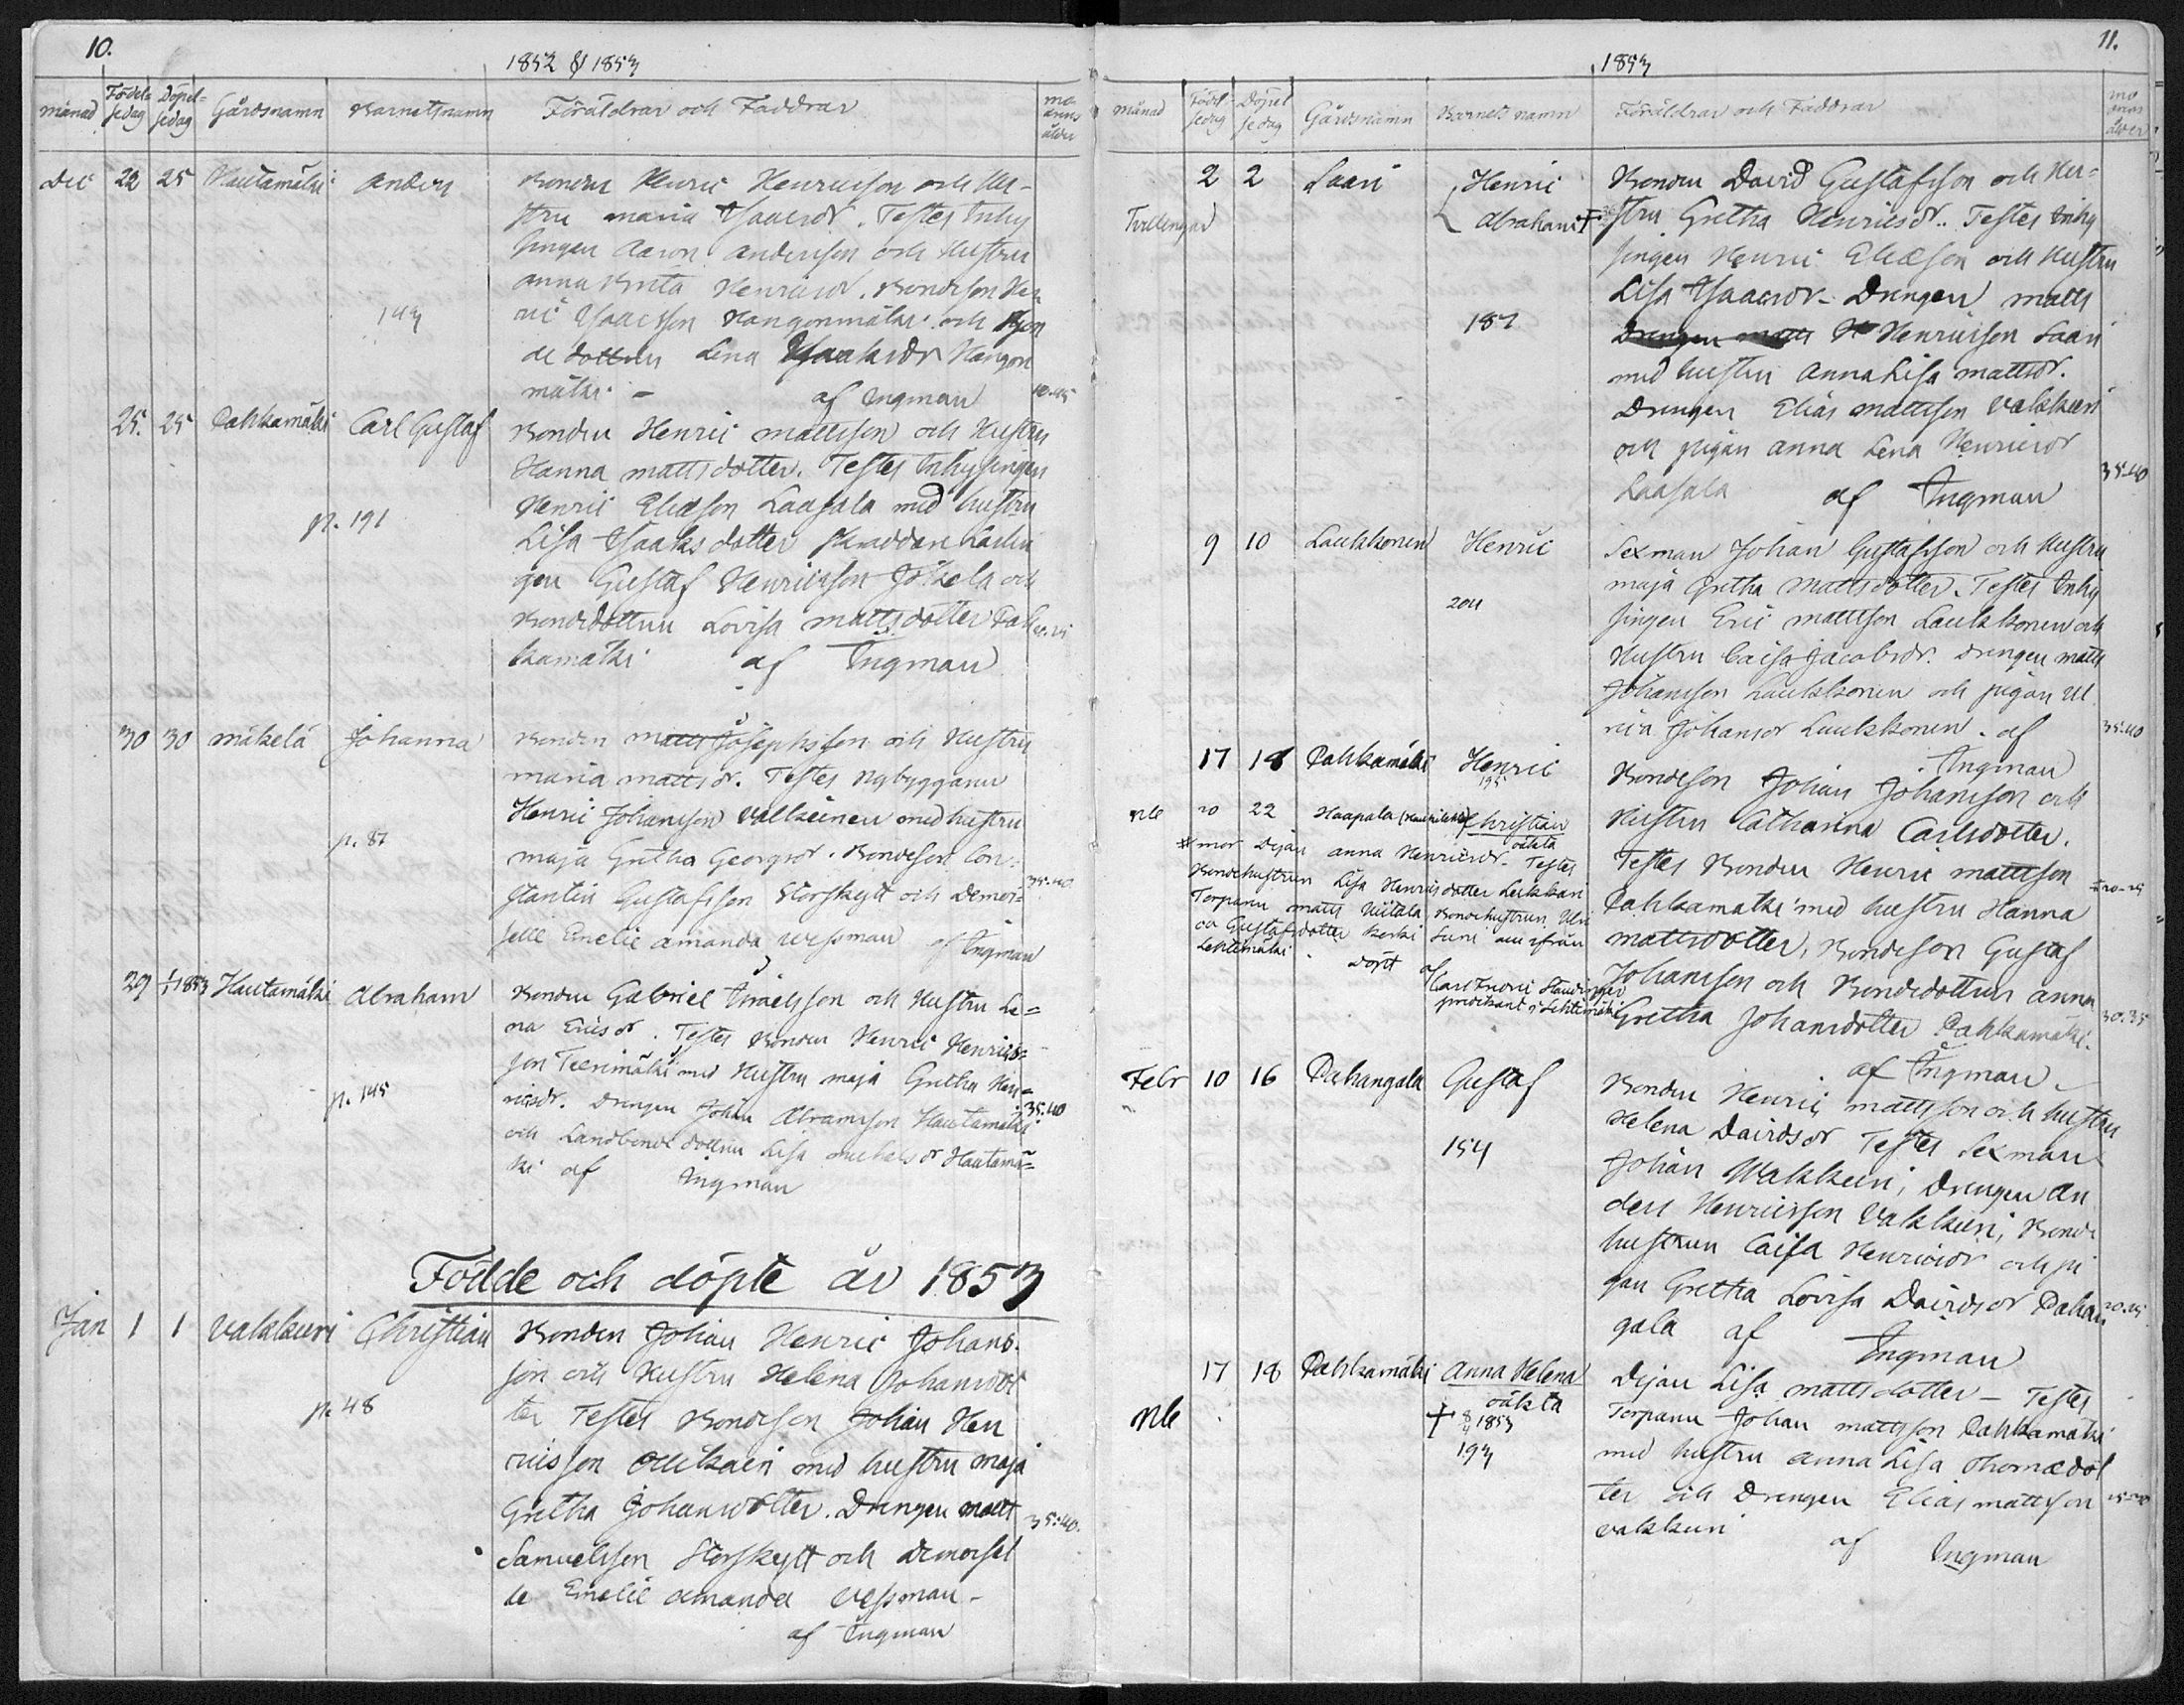 10.
1852 & 1853
månad Födel= sedag Döpel= sedag Gårdsnamn Barnetsnamn Föräldrar och Faddrar
Dec 22 25 Hautamäki Anders Bonden Henric Henricsson och Hu-
stru Maria Isacsdr. Testes Inhy
singen Aaron Andersson och Hustru
Anna Brita Henricsdr, Bondeson Hen
ric Isacsson Hangonmäki och Bon
de dottren Lena Isaaksdr Hangon
mäki - af Ingman
143
25. 25 Pahkamäki Carl Gustaf Bonden Henric Mattsson och Hustru
Hanna Mattsdotter. Testes Inhysingen
Henric Eliæson Laasala med hustru
Lisa Isaaksdotter Skraddare Lärlin
gen Gustaf Henricsson Jokela och
Bondedottren Lovisa Mattsdotter Pah
kamäki af Ingman
p. 191
30 30 Mäkelä Johanna Bonden Matts Josephsson och Hustru
Maria Mattsdr. Testes Nybyggaren
Henric Johansson Valkeinen med hustru
Maja Gretha Georgsdr. Bondeson Con-
stantin Gustafsson Storskytt och Demoi-
selle Emelie Amanda Wessman af Ingman
p. 87
35-40
29 1/1 1853 Hautamäki Abraham Bonden Gabriel Israelsson och Hustru Le=
na Ericsdr. Testes Bonden Henric Henrics=
son Teerimäki med Hustru Maja Gretha Hen=
ricsdr. Drengen Johan Abramsson Hautamäki
och Landbonde dottren Lisa Michelsdr Hautamä=
ki af Ingman
p. 145
35:40
Födde och döpte år 1853
Jan 1 1 Vakkuri Christian Bonden Johan Henric Johans-
son och Hustru Helena Johansdot
ter Testes Bondeson Johan Hen
ricsson Ollikain med hustru Maja
Gretha Johansdotter. Drengen Matts
Samuelsson Storskytt och Demoisel
le Emelie Amanda Wessman -
af Ingman
p. 48
35:40.
11.
1853
månad Födel sedag Döpel sedag Gårdsnamn Barnets namn Föräldrar och Faddrar
2 2 Saari Henric Bonden David Gustafsson och Hu=
Tvillingar Abraham + stru Gretha Henricsdr. Testes Inhy
singen Henric Eliæson och Hustru
Lisa Isaacsdr - Drengen Matts
Drengen Matts Henricsson Saari
med hustru Anna Lisa Mattsdr.
Drengen Elias Mattsson Vakkuri
och pigan Anna Lena Henricsdr
Laasala af Ingman
187
35-40
9 10 Laukkonen Henric Sexman Johan Gustafsson och Hustru
Maja Gretha Mattsdotter. Testes Inhy
singen Eric Mattsson Laukkonen och
Hustru Caisa Jacobsdr. Drengen Matts
Johansson Laukkonen och pigan Ul
rica Johansdr Laukkonen. af
Ingman
204
35:40
17 18 Pahkamäki Henric Bondeson Johan Johansson och
195
Hustru Catharina Carlsdotter.
Testes Bonden Henric Mattsson
Pahkamäki med hustru Hanna
Mattsdotter, Bondeson Gustaf
Johansson och Bondedottren Anna
Gretha Johansdotter Pahkamäki.
af Ingman
30:35
20 22 Haapala Christian
oäkta
mor Dejan Anna Henricsdr. Testes
Bondehustrun Lisa Henricsdotter
Torparen Matts Niitala Bondehustrun Ulri
ca Gustafsdotter
Lehtimäki. Döpt af
Carl Fredric Staudinger
predikant i Lehtimäki
Febr 10 16 Pahangala Gustaf Bonden Henric Mattsson och hustru
Helena Davidsdr Testes Sexman
Johan Wakkuri, Drengen An
ders Henricsson Vakkuri, Bonde
hustrun Caisa Henricsdr och pi
gan Gretha Lovisa Davidsdr Pahan
gala af Ingman
154
17 18 Pahkamäki Anna Helena Dejan Lisa Mattsdotter - Testes
oäkta
+ 8/4 1853
193
Torparen Johan Mattsson Pahkamäki
med hustru Anna Lisa Thomædot
ter och Drengen Elias Mattsson
Vakkuri
af Ingman